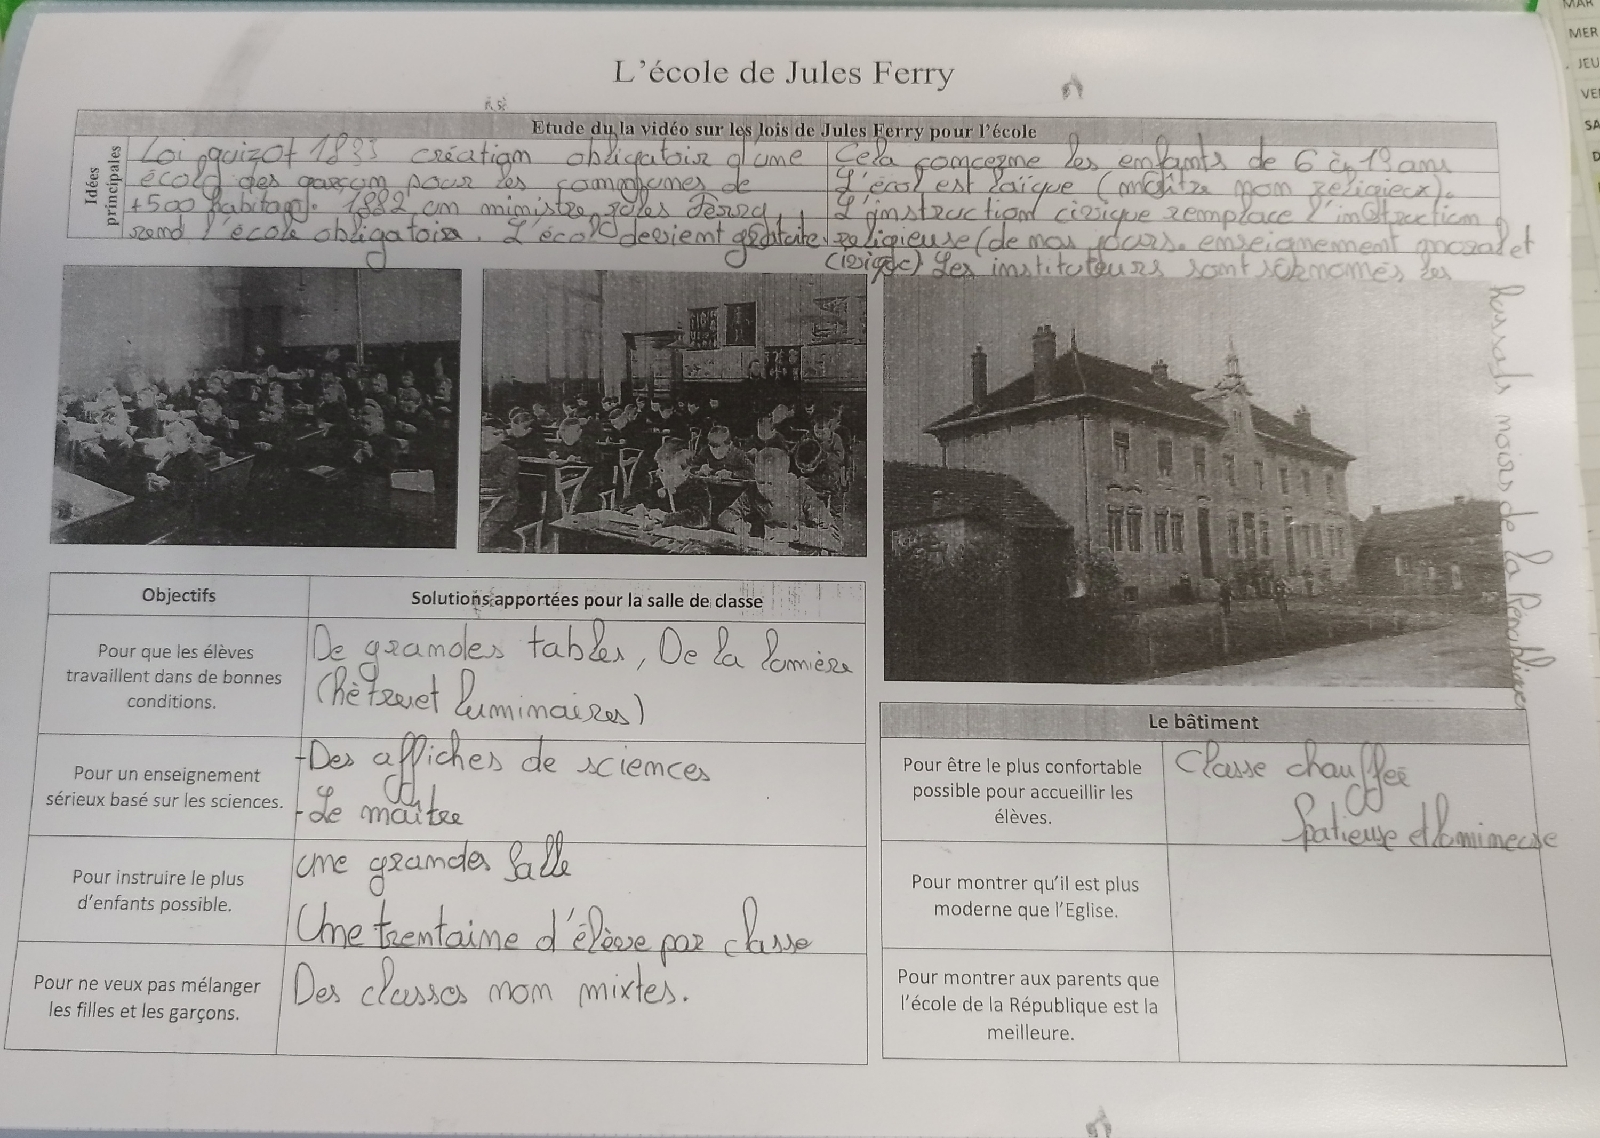 L'école de Jules Ferry
Etude du la vidéo sur les lois de Jules Ferry pour l'école
Idées principales
Loi guizot 1833 création obligatoir d'une
école des garçom pour les commumes de
+500 habitam. 1882 um ministre, Jules Ferry,
remd l'école obligatoire. L'école devient gratuite.
Cela comcerme les emfamts de 6 à 13 ams
L'école est laïque (maître mom religieux).
L'imstructiom civique remplace l'imstructiom
religieuse (de mos jours. emseignememt moral et
civique) Les instituteurs somt surmomés les
hussards moirs de la République
Objectifs
Solutions apportées pour la salle de classe
Pour que les élèves
travaillent dans de bonnes
conditions.
De gramdes tables, De la lumière
(fêtre et luminaires)
Pour un enseignement
sérieux basé sur les sciences.
-Des affiches de sciences
-Le maître
Pour instruire le plus
d'enfants possible.
une grandes Salle
Une trentaime d'élève par classe
Pour ne veux pas mélanger
les filles et les garçons.
Des classes mom mixtes.
Le bâtiment
Pour être le plus confortable
possible pour accueillir les
élèves.
Classe chauffée
Spatieuse et lumineuse
Pour montrer qu'il est plus
moderne que l'Eglise.
Pour montrer aux parents que
l'école de la République est la
meilleure.
MAR
MER
JEU
VE
SA
D